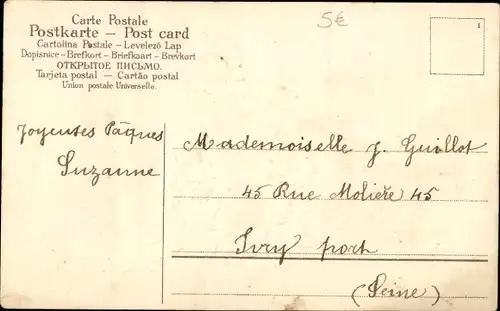 Carte Postale
Postkarte – Post card
Cartolina Postale – Levelező Lap
Dopisnice – Brefkort – Briefkaart – Brevkort
ОТКРЫТОЕ ПИСЬМО.
Tarjeta postal – Cartão postal
Union postale Universelle.
5€
1
Joyeuses Pâques
Suzanne
Mademoiselle J. Guillot
45 Rue Molière 45
Ivry port
(Seine)